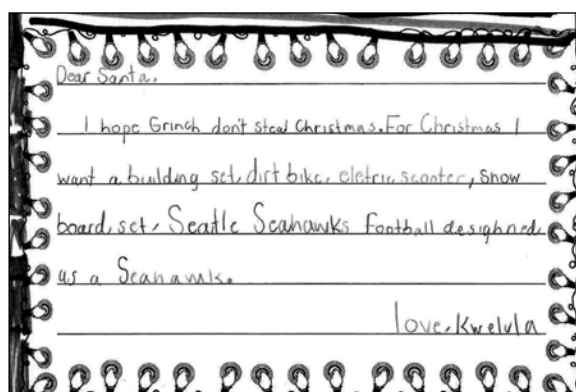 Dear Santa,
I hope Grinch don't steal Christmas. For Christmas I
want a building set, dirt bike, eletric scooter, snow
board, set, Seatle Seahawks Football desighned,
as a Seahawk.
love, Kwelula